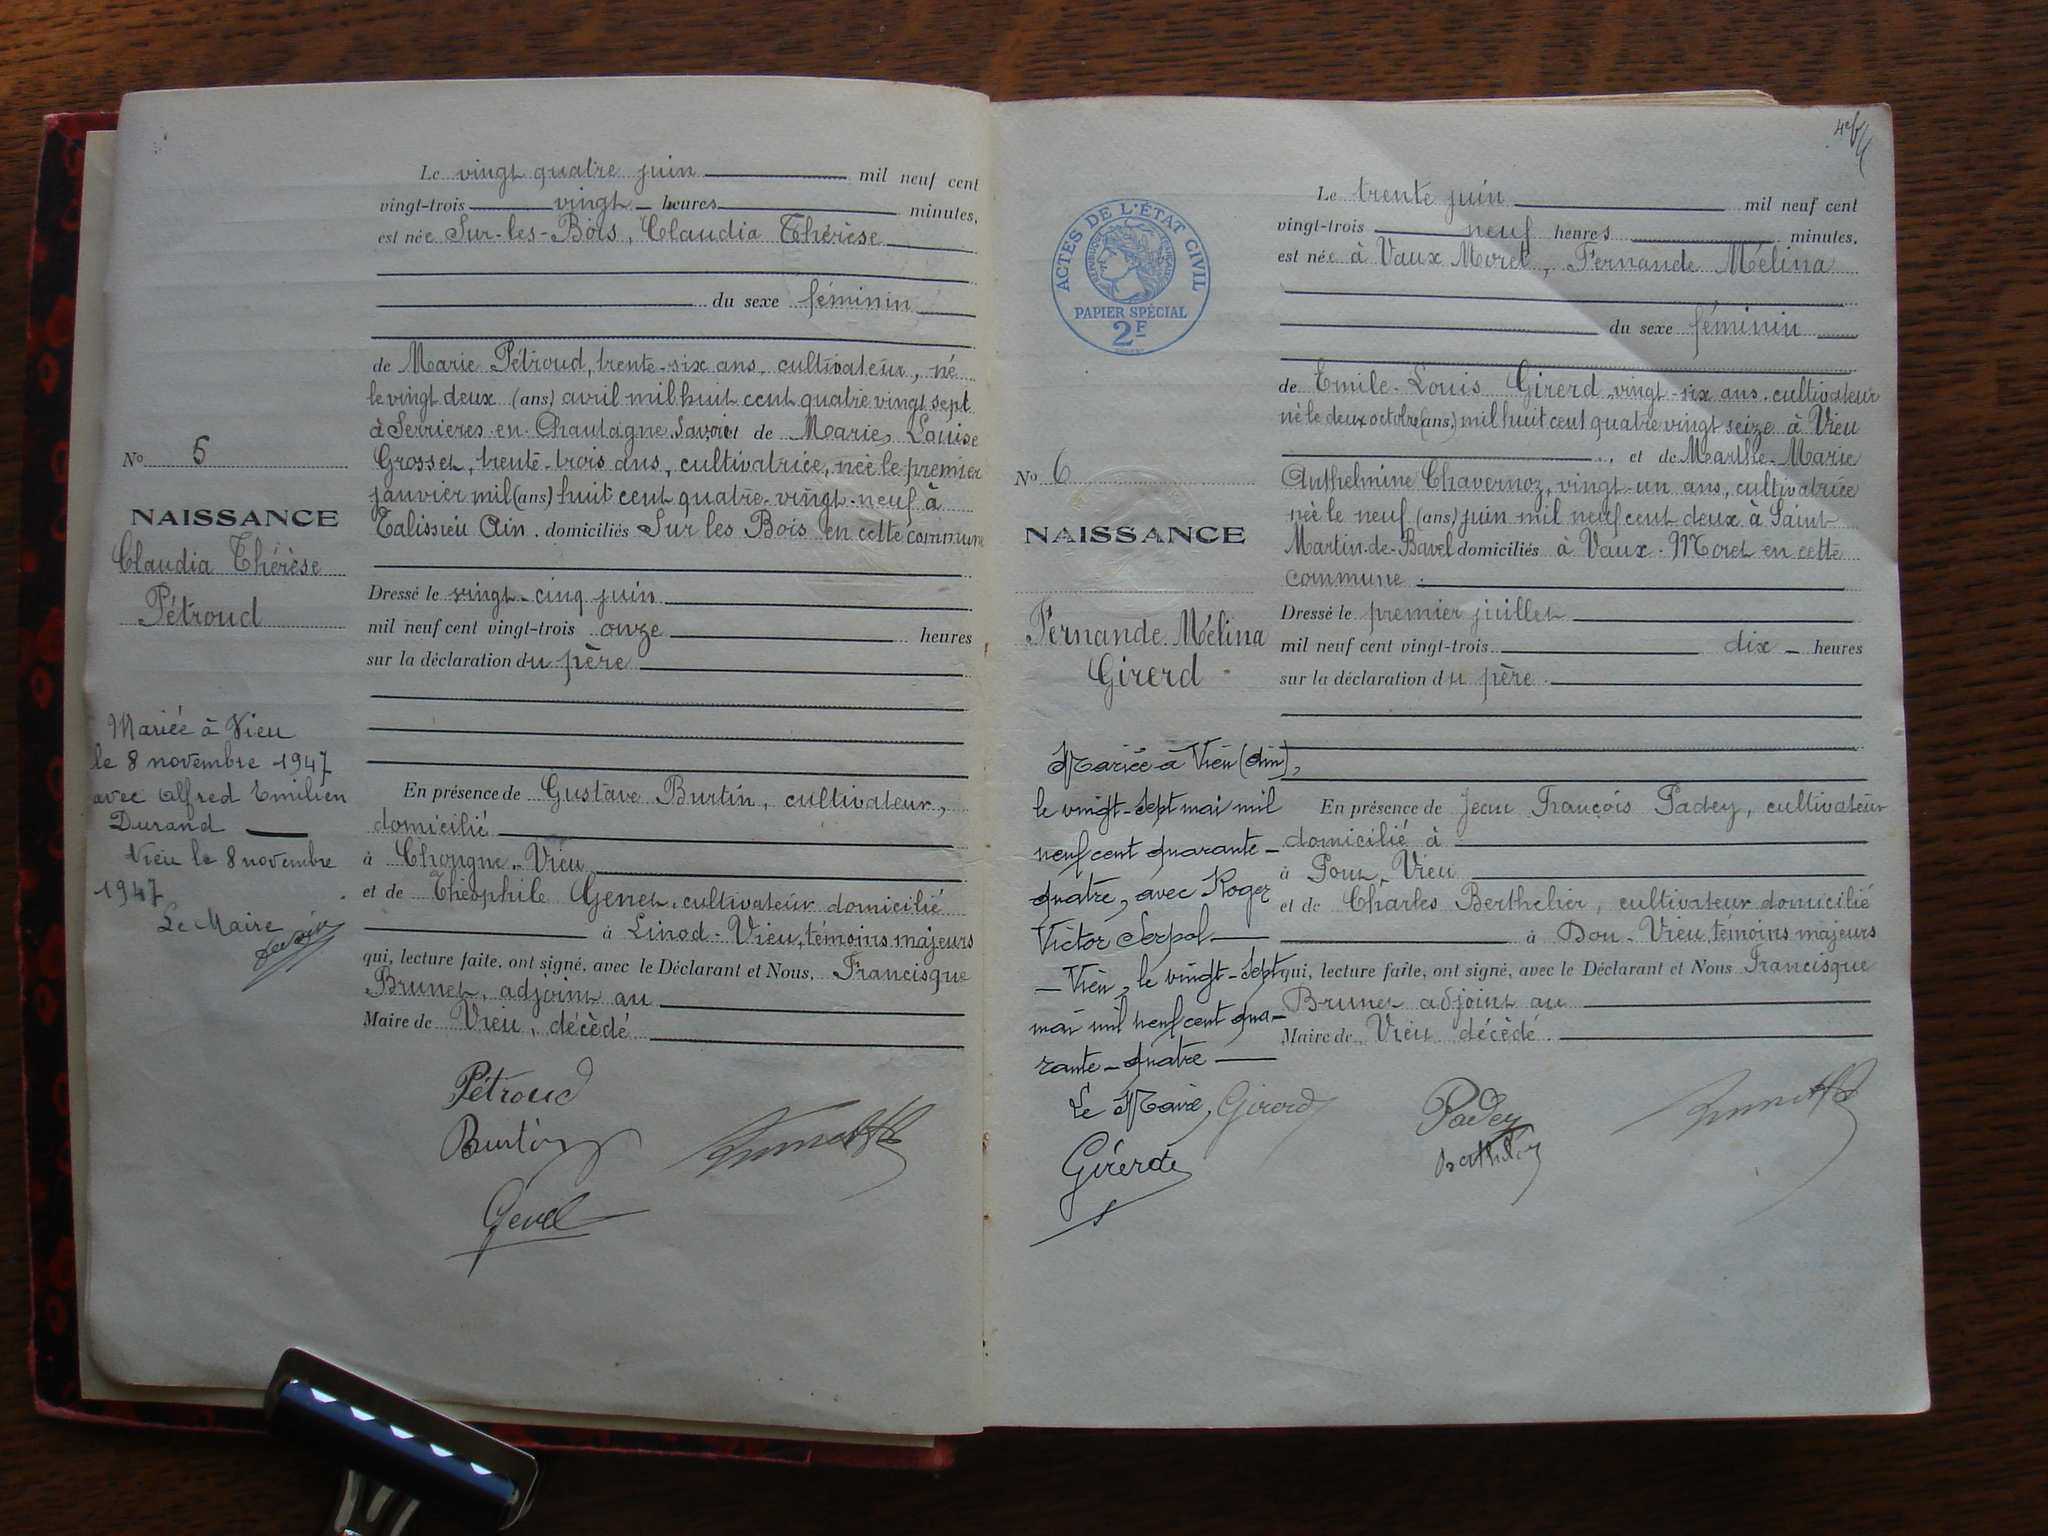 Le vingt quatre juin mil neuf cent
vingt-trois vingt heures minutes,
est née Sur-les-Bois, Claudia Thérèse
du sexe féminin
de Marie Pétroud, trente-six ans, cultivateur, né
le vingt deux (ans) avril mil huit cent quatre vingt sept
à Serrières-en-Chautagne, Savoie et de Marie, Louise
Grosset, trente-trois ans, cultivatrice, née le premier
janvier mil (ans) huit cent quatre-vingt-neuf à
Talissieu Ain. domiciliés Sur les Bois en cette commune
Dressé le vingt-cinq juin
mil neuf cent vingt-trois onze heures
sur la déclaration du père
En présence de Gustave Burtin, cultivateur,
domicilié
à Chongne-Vieu
et de Théophile Genet, cultivateur domicilié
à Linod-Vieu, témoins majeurs
qui, lecture faite, ont signé, avec le Déclarant et Nous, Francisque
Brunet, adjoint au
Maire de Vieu, décédé
Pétroud
Burtin
Genet
No 5
NAISSANCE
Claudia Thérèse
Pétroud
Mariée à Vieu
le 8 novembre 1947
avec Alfred Emilien
Durand
Vieu le 8 novembre
1947
Le Maire
ACTES DE L'ÉTAT CIVIL
RÉPUBLIQUE FRANÇAISE
PAPIER SPÉCIAL
2F
Le trente juin mil neuf cent
vingt-trois neuf heures minutes,
est née à Vaux Moret, Fernande Mélina
du sexe féminin
de Emile-Louis Girerd, vingt-six ans, cultivateur
né le deux octobre (ans) mil huit cent quatre vingt seize à Vieu
, et de Marthe-Marie
Anthelmine Chavernoz, vingt-un ans, cultivatrice
née le neuf (ans) juin mil neuf cent deux à Saint
Martin-de-Bavel domiciliés à Vaux-Moret en cette
commune.
Dressé le premier juillet
mil neuf cent vingt-trois dix heures
sur la déclaration du père.
En présence de Jean François Padey, cultivateur
domicilié à
à Pont-Vieu
et de Charles Berthelier, cultivateur domicilié
à Don-Vieu, témoins majeurs
qui, lecture faite, ont signé, avec le Déclarant et Nous Francisque
Brunet adjoint au
Maire de Vieu décédé.
Girerd
Padey
Berthelier
Brunet
No 6
NAISSANCE
Fernande Mélina
Girerd
Mariée à Vieu (Ain),
le vingt-sept mai mil
neuf cent quarante-
quatre, avec Roger
Victor Serpol
Vieu, le vingt-sept
mai mil neuf cent qua-
rante-quatre
Le Maire,
Girerd